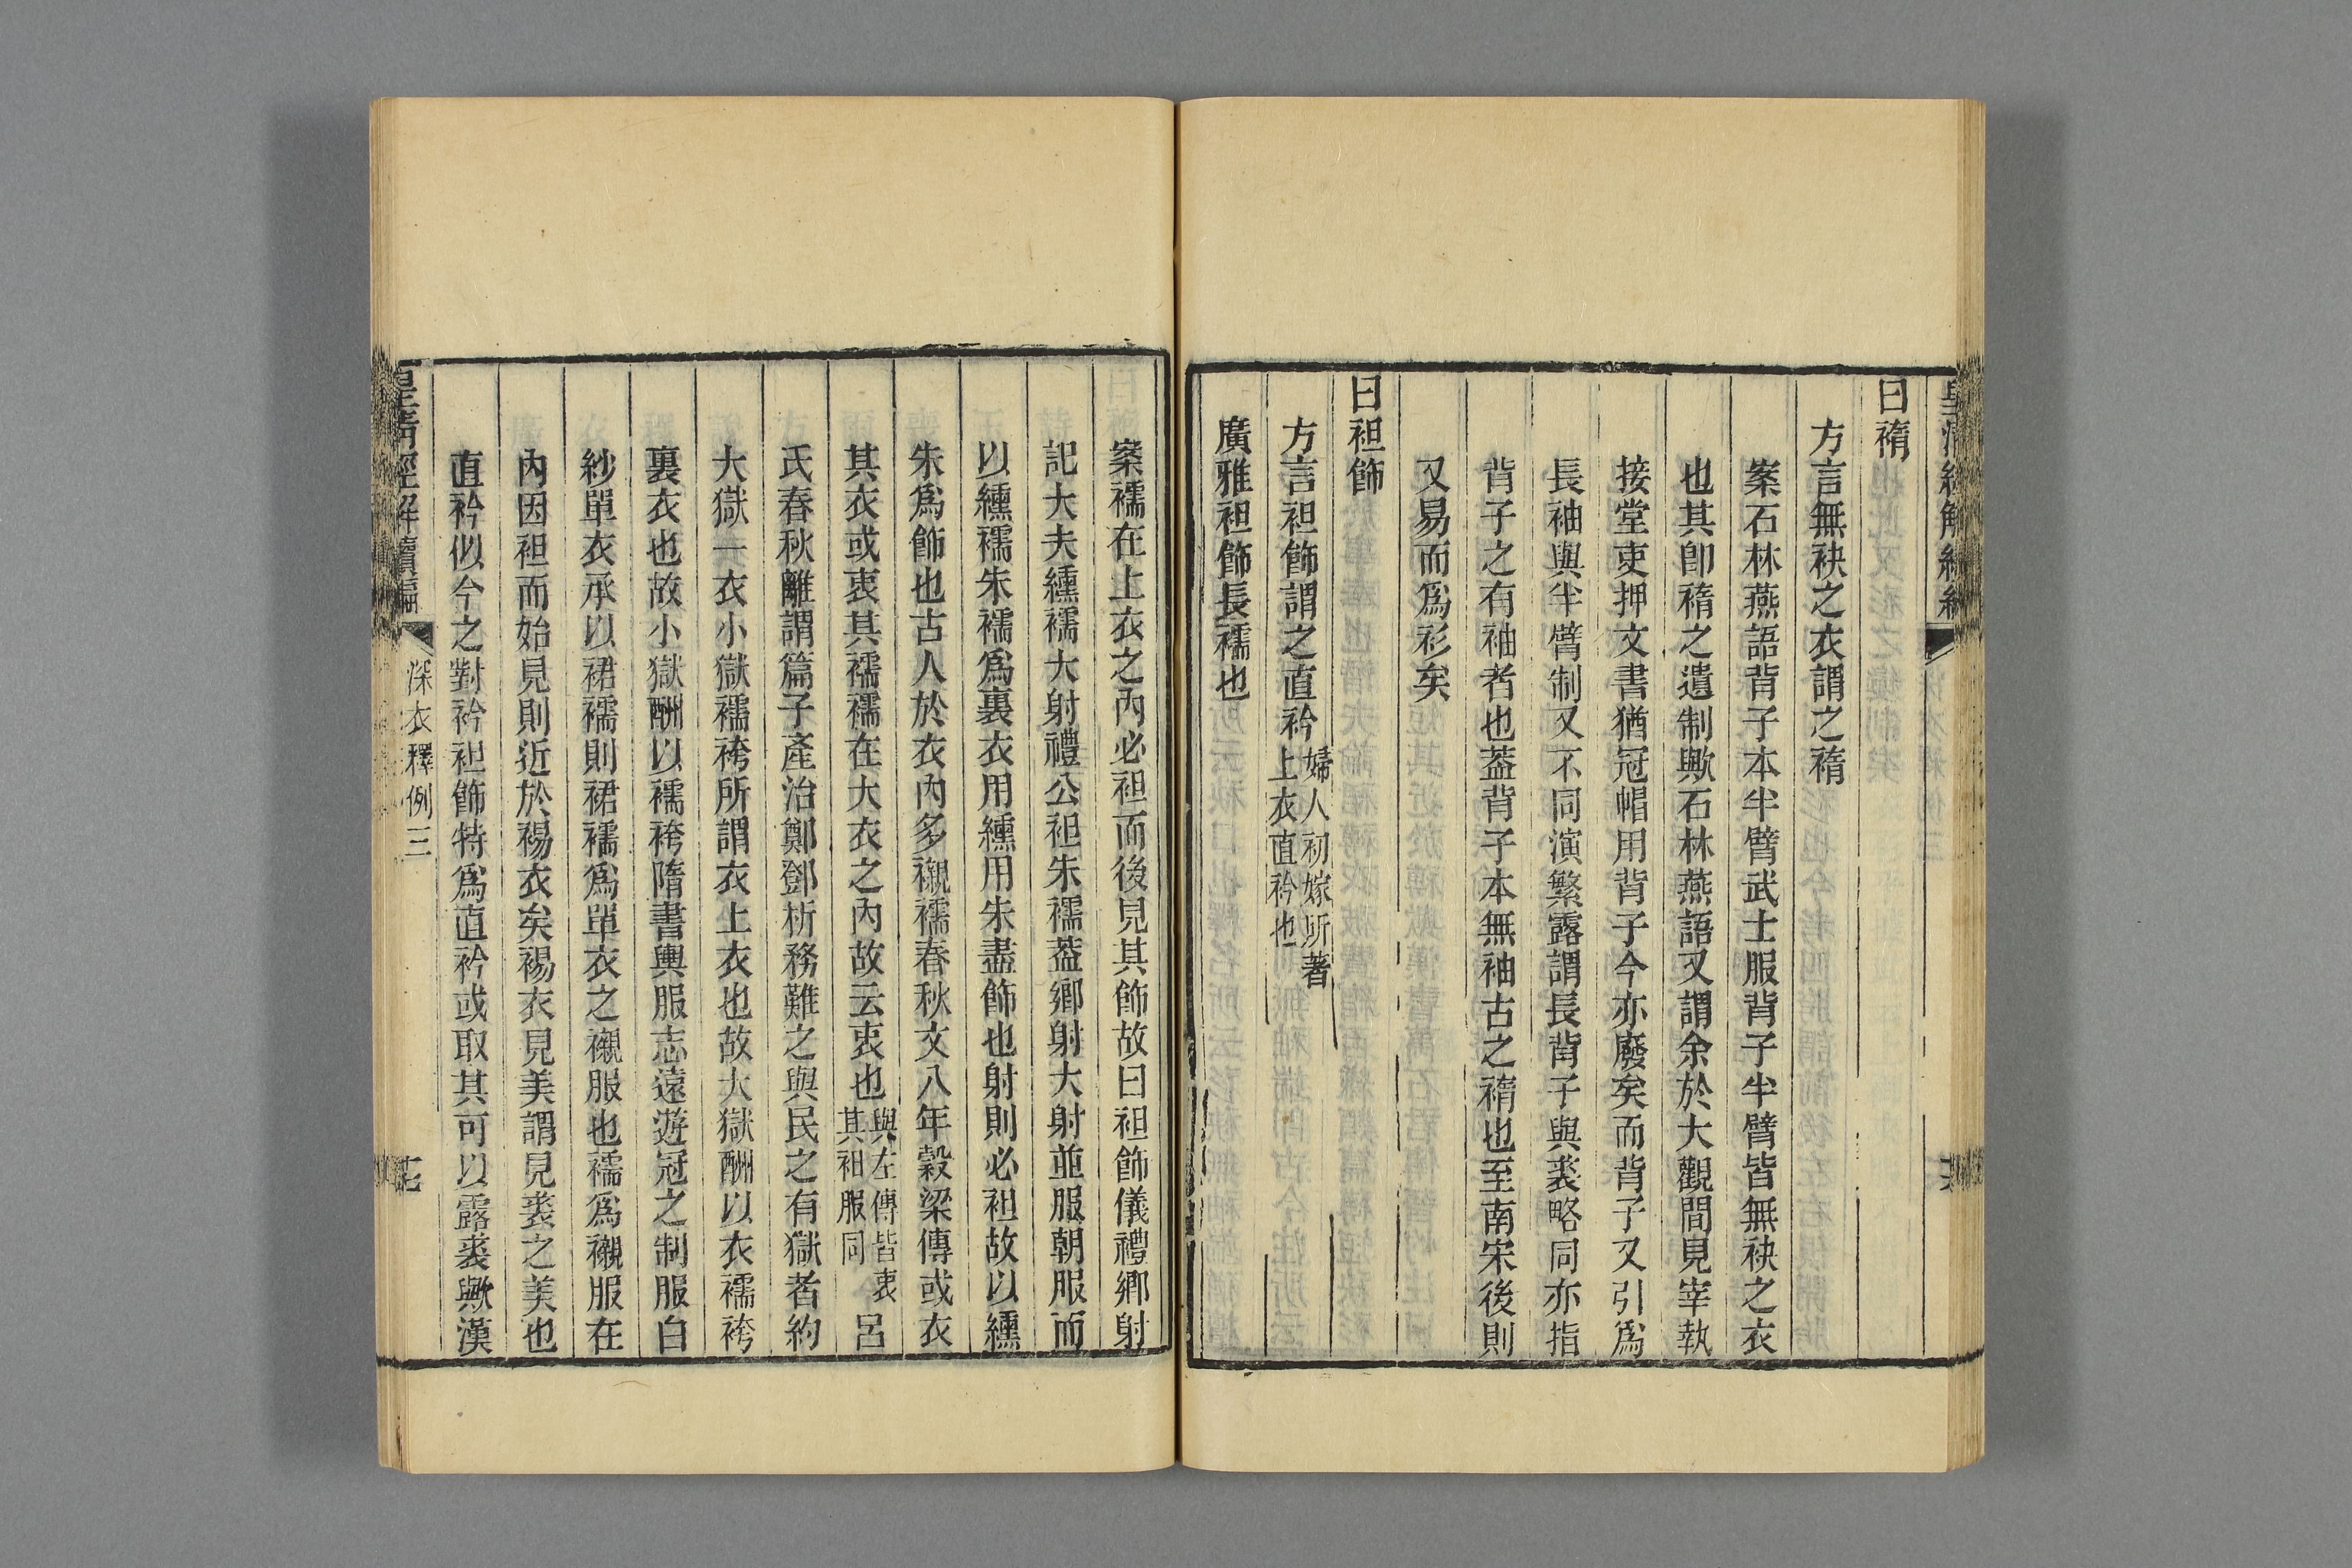 曰褿
方言無袂之衣謂之褿
案石林燕語背子本半臂武士服背子半臂皆無袂之衣
也其卽褿之遺制歟石林燕語又謂余於大觀間見宰執
接堂吏押文書猶冠帽用背子今亦廢矣而背子又引爲
長袖與半臂制又不同演繁露謂長背子與裘略同亦指
背子之有袖者也葢背子本無袖古之褿也至南宋後則
又易而爲衫矣
曰袒飾
方言袒飾謂之直衿婦人初嫁所著上衣直衿也
廣雅袒飾長襦也
案襦在上衣之內必袒而後見其飾故曰袒飾儀禮鄉射
記大夫纁襦大射禮公袒朱襦葢鄉射大射並服朝服而
以纁襦朱襦爲裏衣用纁用朱盡飾也射則必袒故以纁
朱爲飾也古人於衣內多襯襦春秋文八年穀梁傳或衣
其衣或衷其襦襦在大衣之內故云衷也與左傳皆衷其衵服同呂
氏春秋離謂篇子產治鄭鄧析務難之與民之有獄者約
大獄一衣小獄襦袴所謂衣上衣也故大獄酬以衣襦袴
裏衣也故小獄酬以襦袴隋書輿服志遠遊冠之制服白
紗單衣承以裙襦則裙襦爲單衣之襯服也襦爲襯服在
內因袒而始見則近於裼衣矣裼衣見美謂見裘之美也
直衿似今之對衿袒飾特爲直衿或取其可以露裘歟漢
皇淸經解續編
深衣釋例三
十七